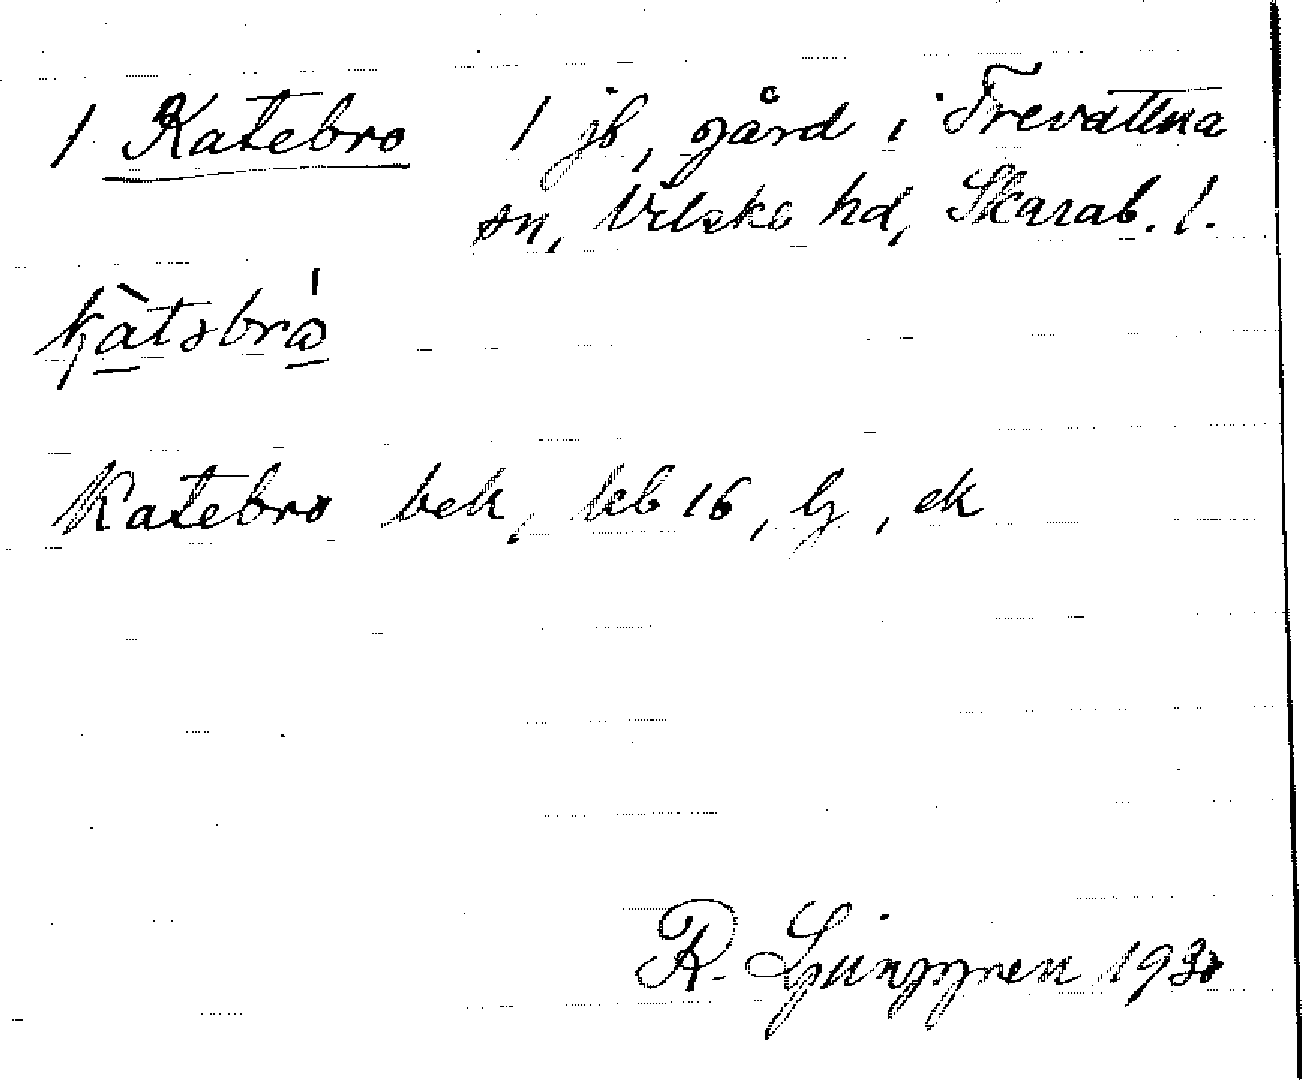 1 Katebro 1 jb, gård i Trevattna
sn, Vilske hd, Skarab. l.
Katebro bek, kb 16, lj, ek
R. Ljunggren 1930